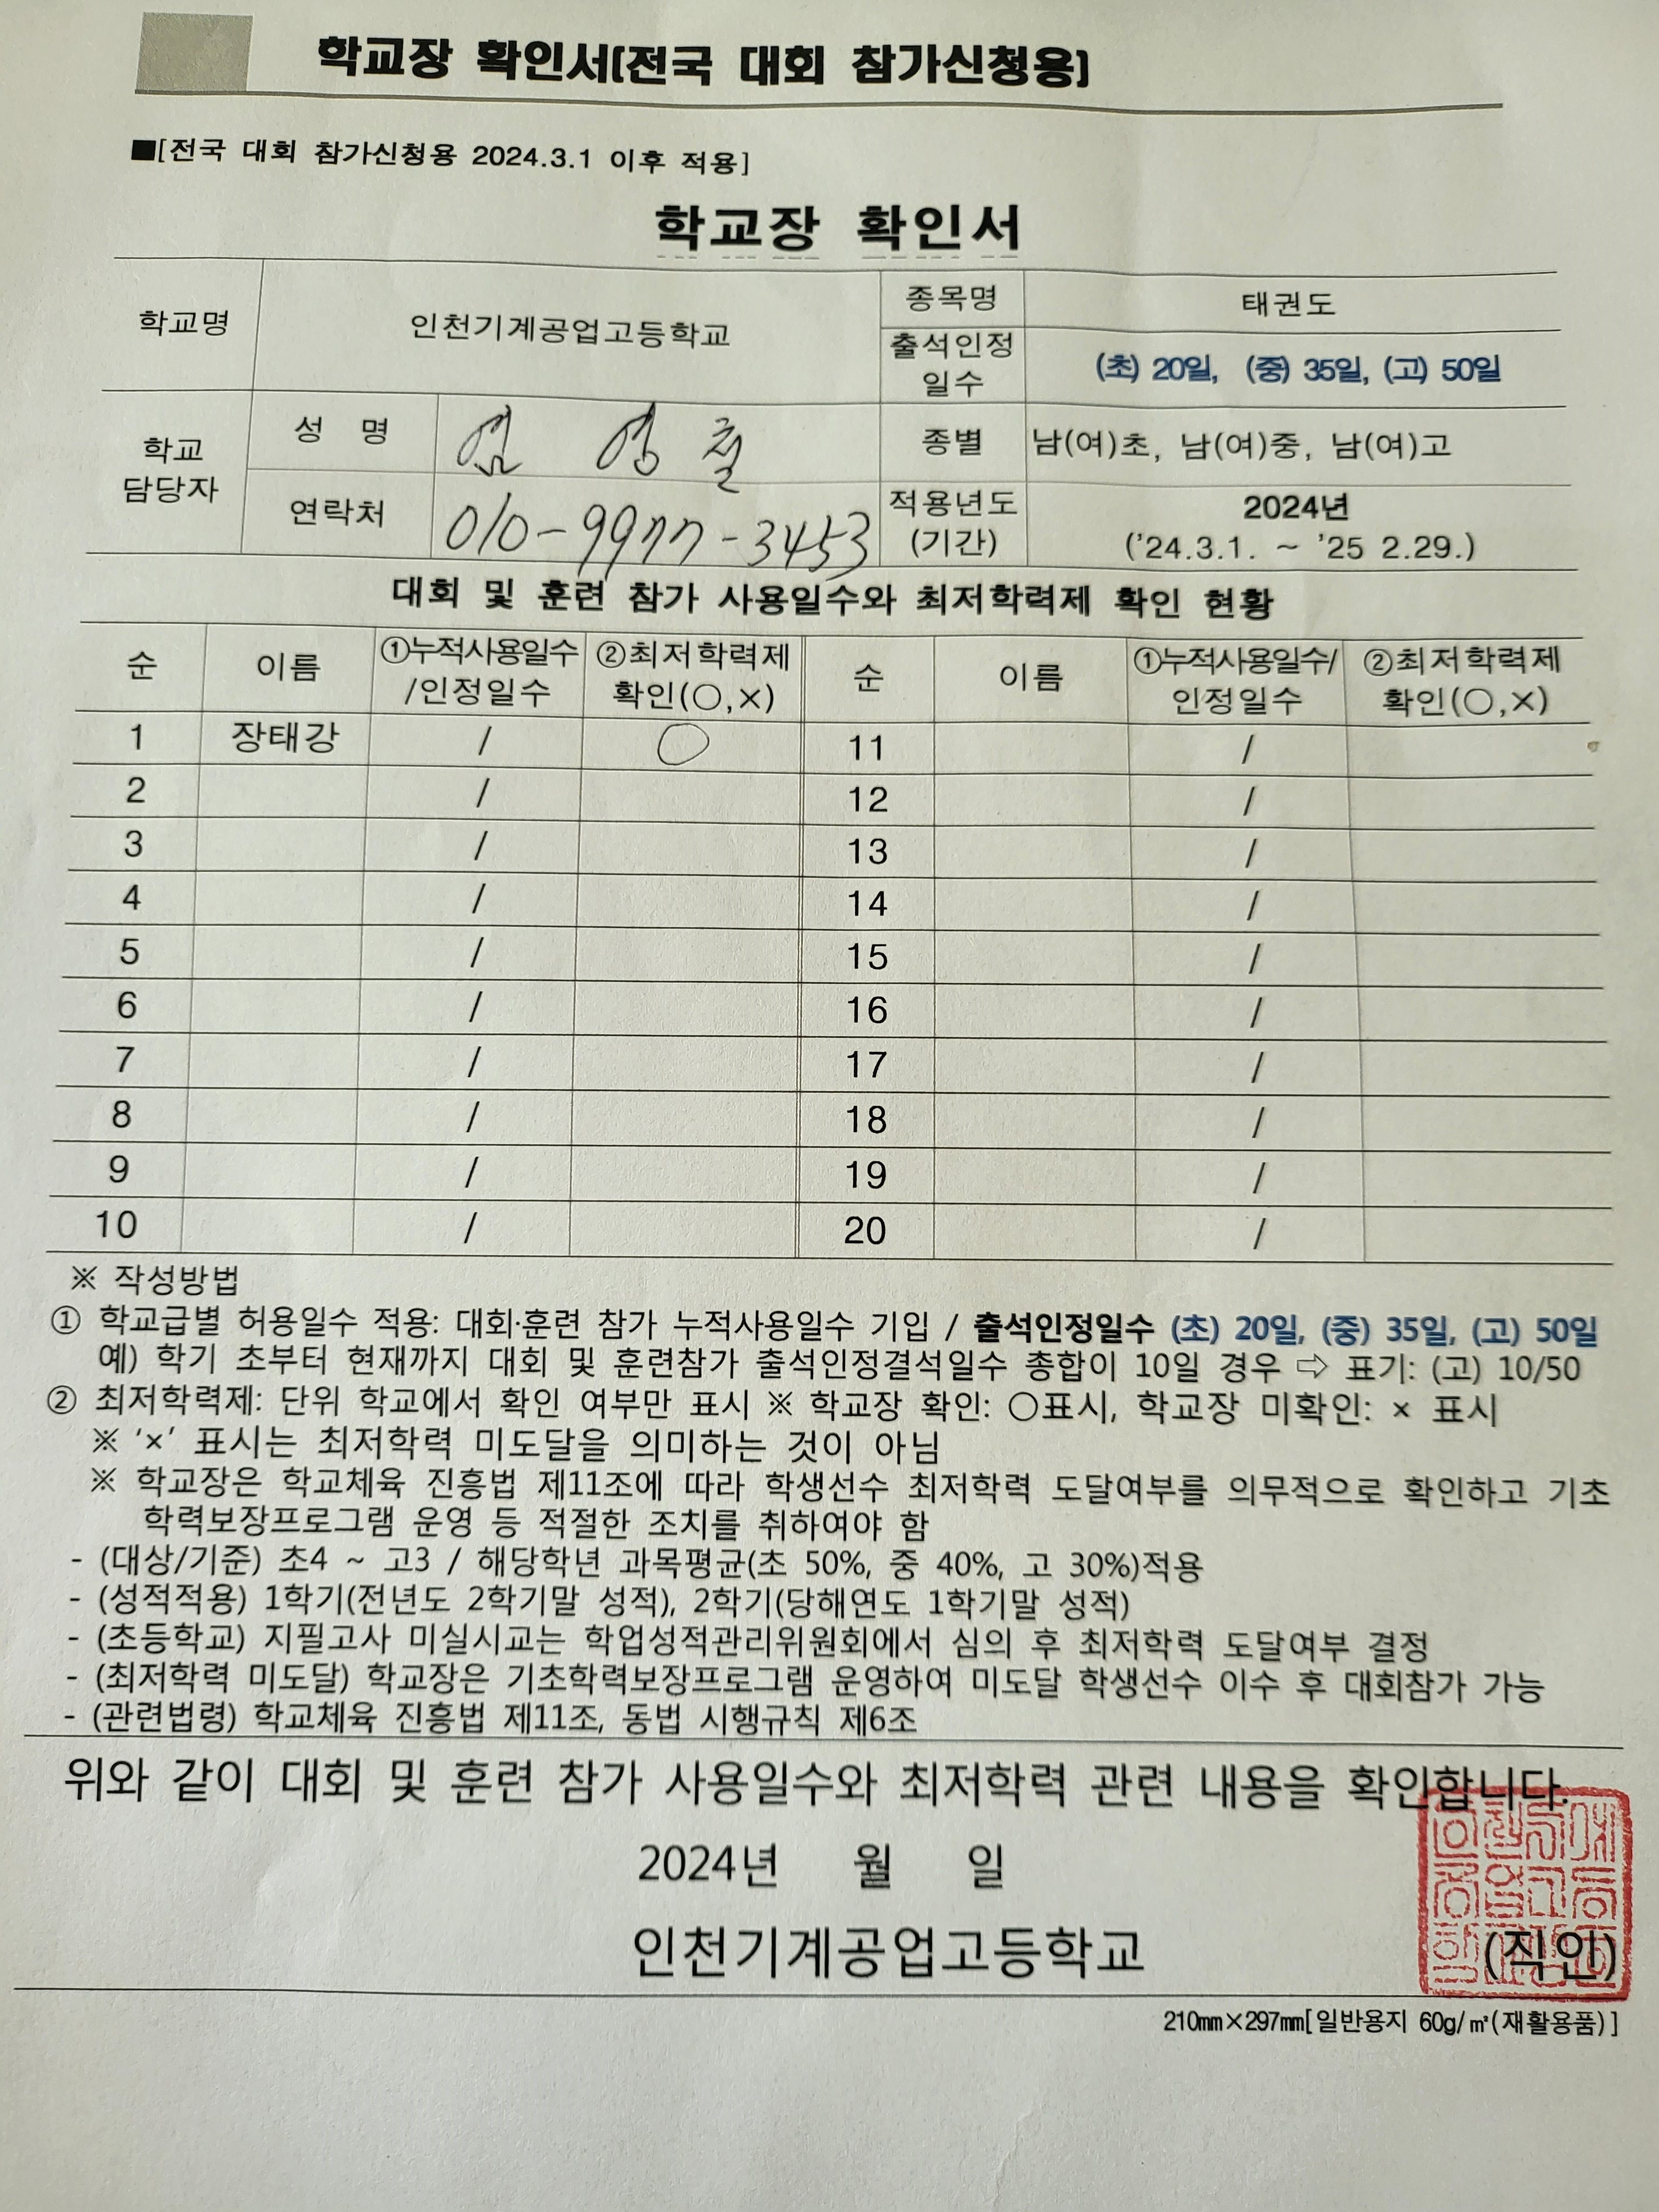 학교장 확인서[전국 대회 참가신청용]
■[전국 대회 참가신청용 2024.3.1 이후 적용]
학교장 확인서
학교명 인천기계공업고등학교 종목명 태권도
출석인정 일수 (초) 20일, (중) 35일, (고) 50일
학교 담당자 성 명 엄 영 철 종별 남(여)초, 남(여)중, 남(여)고
연락처 010-9977-3453 적용년도 (기간) 2024년 ('24.3.1. ~ '25 2.29.)
대회 및 훈련 참가 사용일수와 최저학력제 확인 현황
순 이름 ①누적사용일수/인정일수 ②최저학력제 확인(○,×) 순 이름 ①누적사용일수/인정일수 ②최저학력제 확인(○,×)
1 장태강 / ○ 11 /
2 / 12 /
3 / 13 /
4 / 14 /
5 / 15 /
6 / 16 /
7 / 17 /
8 / 18 /
9 / 19 /
10 / 20 /
※ 작성방법
① 학교급별 허용일수 적용: 대회·훈련 참가 누적사용일수 기입 / 출석인정일수 (초) 20일, (중) 35일, (고) 50일
예) 학기 초부터 현재까지 대회 및 훈련참가 출석인정결석일수 총합이 10일 경우 ⇨ 표기: (고) 10/50
② 최저학력제: 단위 학교에서 확인 여부만 표시 ※ 학교장 확인: ○표시, 학교장 미확인: × 표시
※ '×' 표시는 최저학력 미도달을 의미하는 것이 아님
※ 학교장은 학교체육 진흥법 제11조에 따라 학생선수 최저학력 도달여부를 의무적으로 확인하고 기초
학력보장프로그램 운영 등 적절한 조치를 취하여야 함
- (대상/기준) 초4 ~ 고3 / 해당학년 과목평균(초 50%, 중 40%, 고 30%)적용
- (성적적용) 1학기(전년도 2학기말 성적), 2학기(당해연도 1학기말 성적)
- (초등학교) 지필고사 미실시교는 학업성적관리위원회에서 심의 후 최저학력 도달여부 결정
- (최저학력 미도달) 학교장은 기초학력보장프로그램 운영하여 미도달 학생선수 이수 후 대회참가 가능
- (관련법령) 학교체육 진흥법 제11조, 동법 시행규칙 제6조
위와 같이 대회 및 훈련 참가 사용일수와 최저학력 관련 내용을 확인합니다.
2024년 월 일
인천기계공업고등학교 (직인)
210㎜×297㎜[일반용지 60g/㎡(재활용품)]